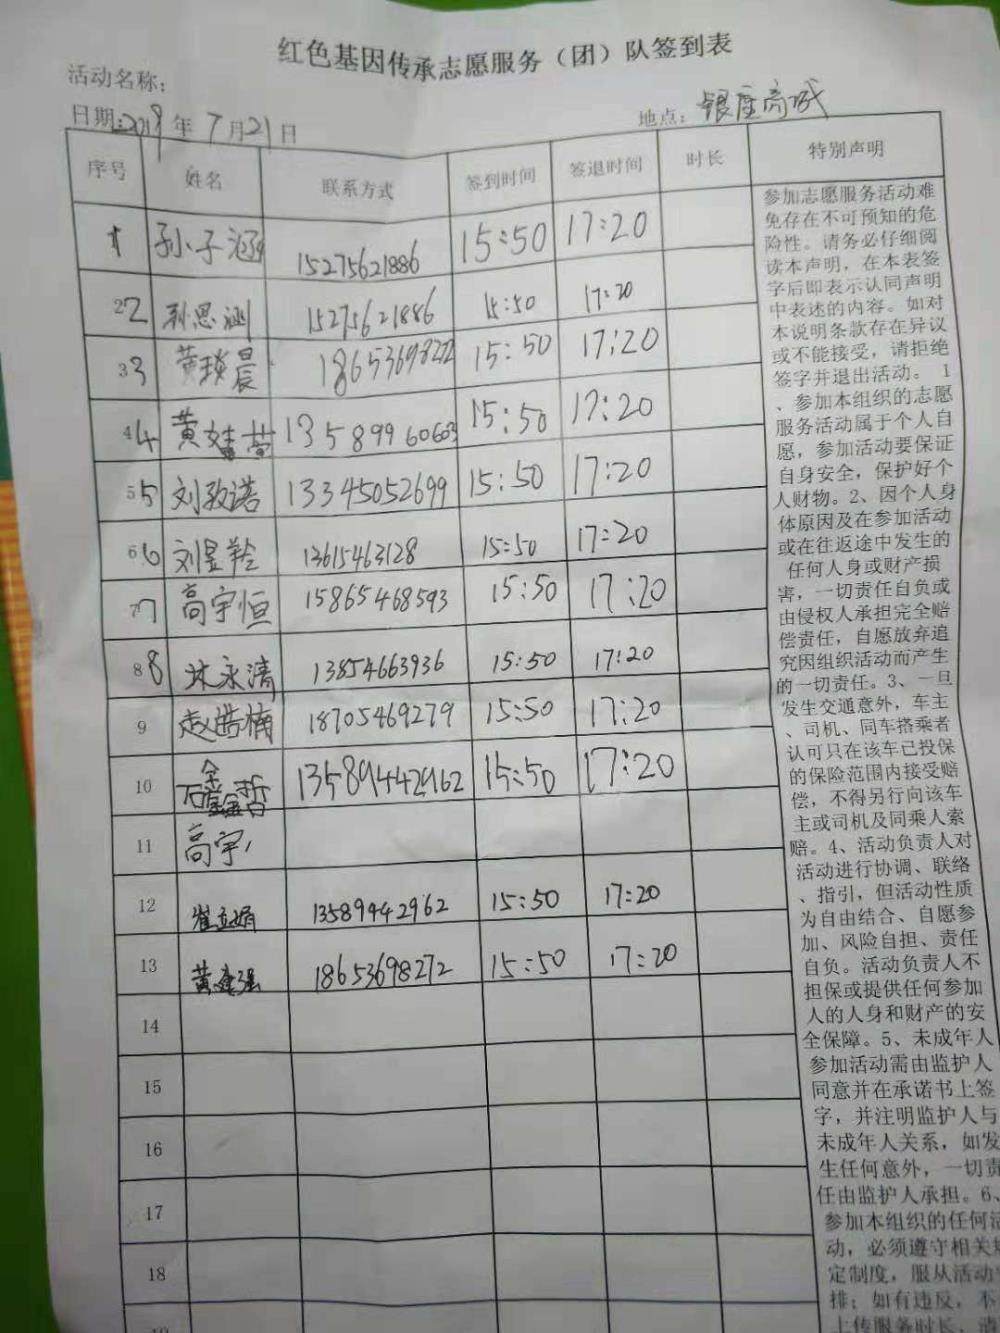 红色基因传承志愿服务（团）队签到表
活动名称：
日期：2019年7月21日 地点：银座商城
序号 姓名 联系方式 签到时间 签退时间 时长 特别声明
1 孙子涵 15275621886 15:50 17:20
2 2 孙思涵 15275621886 15:50 17:20
3 3 黄琰晨 18653698272 15:50 17:20
4 4 黄 13589960603 15:50 17:20
5 5 刘致诺 13345052699 15:50 17:20
6 6 刘昱羚 13615463128 15:50 17:20
7 7 高宇恒 15865468593 15:50 17:20
8 8 林永清 13854663936 15:50 17:20
9 赵浩楠 18705469279 15:50 17:20
10 石鑫哲 13589442962 15:50 17:20
11 高宇
12 崔立娟 13589442962 15:50 17:20
13 黄建强 18653698272 15:50 17:20
14
15
16
17
18
19
参加志愿服务活动难
免存在不可预知的危
险性。请务必仔细阅
读本声明，在本表签
字后即表示认同声明
中表述的内容。如对
本说明条款存在异议
或不能接受，请拒绝
签字并退出活动。 1
、参加本组织的志愿
服务活动属于个人自
愿，参加活动要保证
自身安全，保护好个
人财物。2、因个人身
体原因及在参加活动
或在往返途中发生的
任何人身或财产损
害，一切责任自负或
由侵权人承担完全赔
偿责任，自愿放弃追
究因组织活动而产生
的一切责任。3、一旦
发生交通意外，车主
、司机、同车搭乘者
认可只在该车已投保
的保险范围内接受赔
偿，不得另行向该车
主或司机及同乘人索
赔。4、活动负责人对
活动进行协调、联络
、指引，但活动性质
为自由结合、自愿参
加、风险自担、责任
自负。活动负责人不
担保或提供任何参加
人的人身和财产的安
全保障。5、未成年人
参加活动需由监护人
同意并在承诺书上签
字，并注明监护人与
未成年人关系，如发
生任何意外，一切责
任由监护人承担。6、
参加本组织的任何活
动，必须遵守相关规
定制度，服从活动
排；如有违反，不
上传服务时长，请